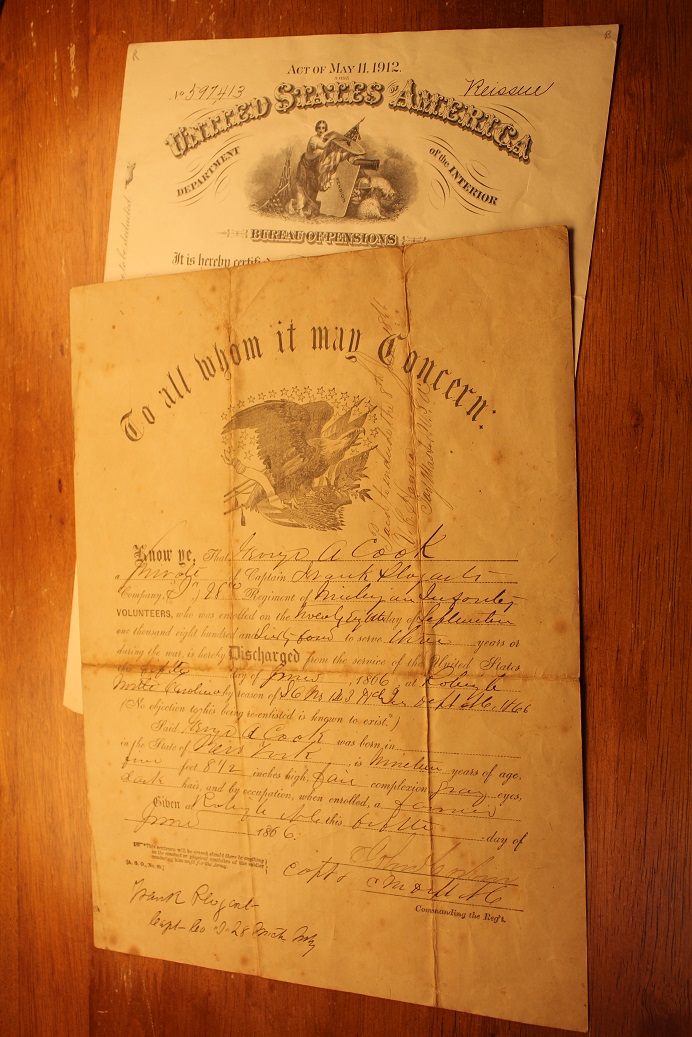 Act of May 11, 1912.
No 597413
Reissue
United States of America
Department of the Interior
Bureau of Pensions
It is hereby certif
To all whom it may Concern:
Know ye, That George A Cook
a Private of Captain Frank Plogarts
Company, (D,) 28th Regiment of Michigan Infantry
VOLUNTEERS, who was enrolled on the twenty Eighth day of September
one thousand eight hundred and Sixty four to serve three years or
during the war, is hereby Discharged from the service of the United States
this fifth day of June, 1866, at Raleigh
North Carolina by reason of
(No objection to his being re-enlisted is known to exist.)
Said George A Cook was born in
in the State of New York, is Nineteen years of age,
five feet 8 1/2 inches high, fair complexion, Gray eyes,
Dark hair, and by occupation, when enrolled, a farmer
Given at Raleigh N.C. this fifth day of
June 1866.
Capt
Commanding the Reg't.
Frank Plogart
Capt Co D 28 Mich Inf